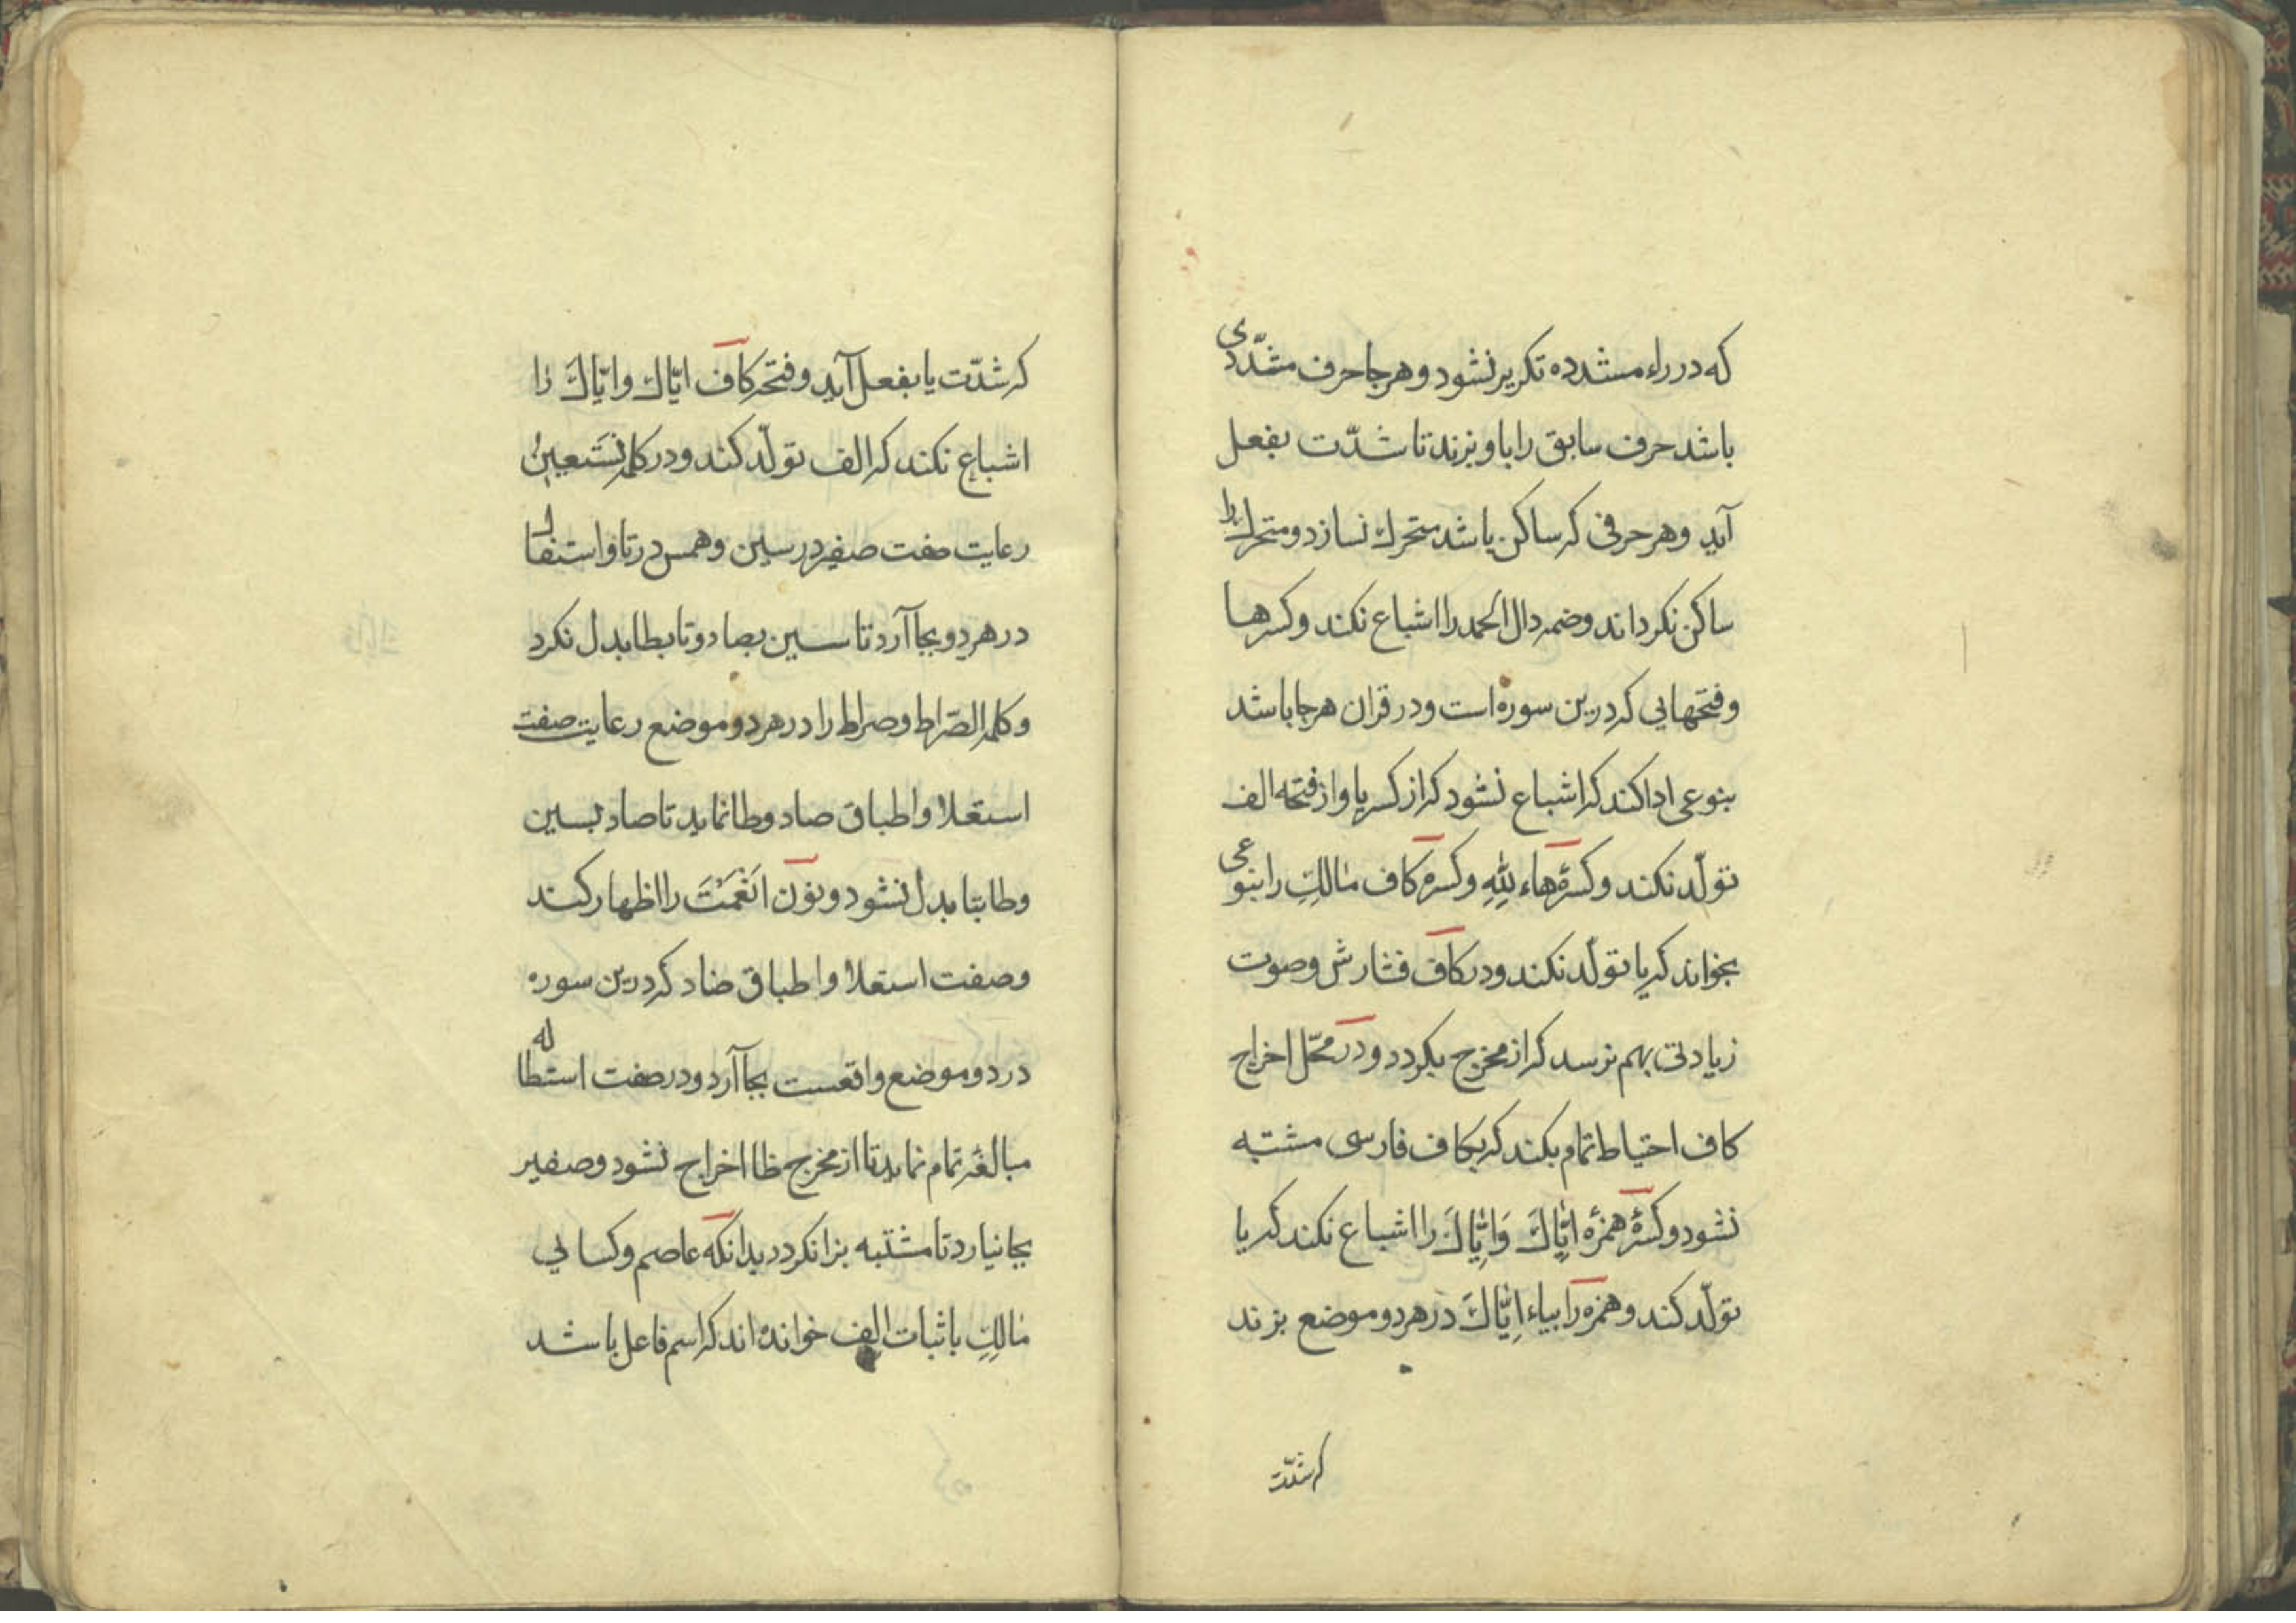 که در راء مشدده تکریر نشود و هرجا حرف مشدّدی
باشد حرف سابق را باو بزند تا شدّت بفعل
آید و هر حرفی که ساکن باشد متحرك نسازد و متحرك را
ساکن نکرداند و ضمه دال الحمد را اشباع نکند و کسرها
و فتحهایی که درین سوره است و در قران هرجا باشد
بنوعی ادا کند که اشباع نشود که از کسر یا و از فتحه الف
تولّد نکند و کسرۀ هاء لِلّٰهِ و کسره کاف مٰالِكِ را بنوعی
بخواند که یا تولّد نکند و در کاف فشارش و صوت
زیادتی بهم نرسد که از مخرج بکردد و در محّل اخراج
کاف احتیاط تمام بکند که بکاف فارسی مشتبه
نشود و کسرۀ همزۀ اِیّٰاكَ وَاِیّٰاكَ را اشباع نکند که یا
تولّد کند و همزه را بیاء اِیّٰاكَ در هر دو موضع بزند
که شدّت
که شدّت یا بفعل آید و فتحه کاف ایّاك و ایّاكَ را
اشباع نکند که الف تولّد کند و در کلمه نَسْتَعینُ
رعایت صفت صفیر در سین و همس در تا و استفال
در هر دو بجا آرد تا سین بصاد و تا بطا بدل نکرد
و کلمه الصّراط و صراط را در هر دو موضع رعایت صفت
استعلا و اطباق صاد و طا نماید تا صاد بسین
و طا بتا بدل نشود و نون اَنْعَمْتَ را اظهار کند
و صفت استعلا و اطباق ضاد که درین سوره
در دو موضع واقعست بجا آرد و در صفت استطاله
مبالغه تمام نماید تا از مخرج ظا اخراج نشود و صفیر
بجا نیارد تا مشتبه بزا نکردد بدانکه عاصم و کسائی
مٰالِكِ باثبات الف خوانده اند که اسم فاعل باشد